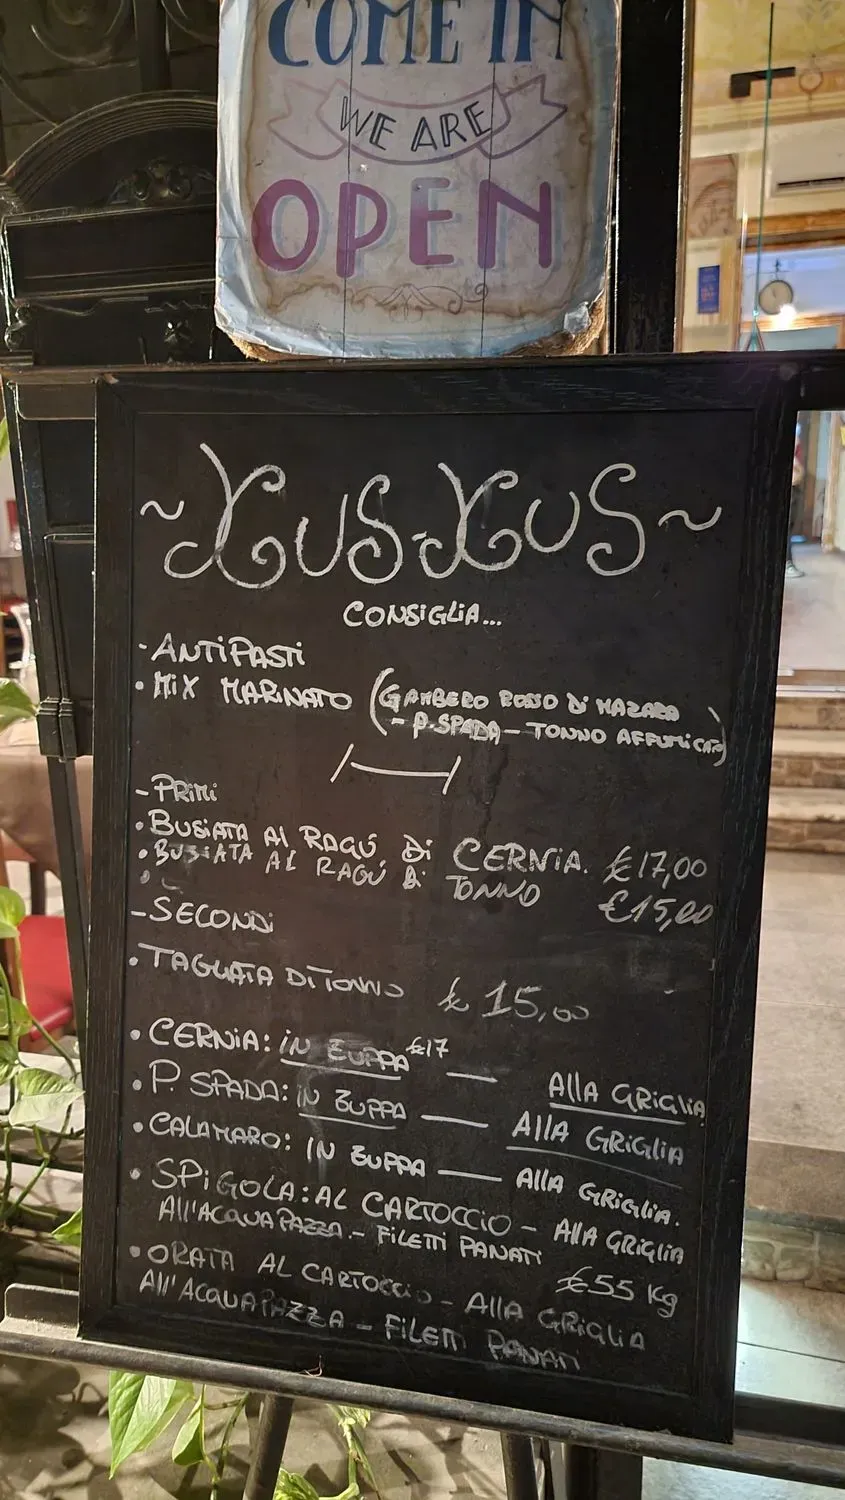 COME IN
WE ARE
OPEN
~ XUS-XUS ~
CONSIGLIA...
- ANTIPASTI
• MIX MARINATO (GAMBERO ROSSO DI MAZARA
- P. SPADA - TONNO AFFUMICATO)
- PRIMI
• BUSIATA AI RAGÚ DI CERNIA. €17,00
• BUSIATA AL RAGÚ DI TONNO €15,00
- SECONDI
• TAGLIATA DI TONNO € 15,00
• CERNIA: IN ZUPPA €17 — ALLA GRIGLIA
• P. SPADA: IN ZUPPA — ALLA GRIGLIA
• CALAMARO: IN ZUPPA — ALLA GRIGLIA.
• SPIGOLA: AL CARTOCCIO - ALLA GRIGLIA
ALL'ACQUA PAZZA. - FILETTI PANATI
€55 Kg
• ORATA AL CARTOCCIO - ALLA GRIGLIA
ALL'ACQUA PAZZA - FILETTI PANATI